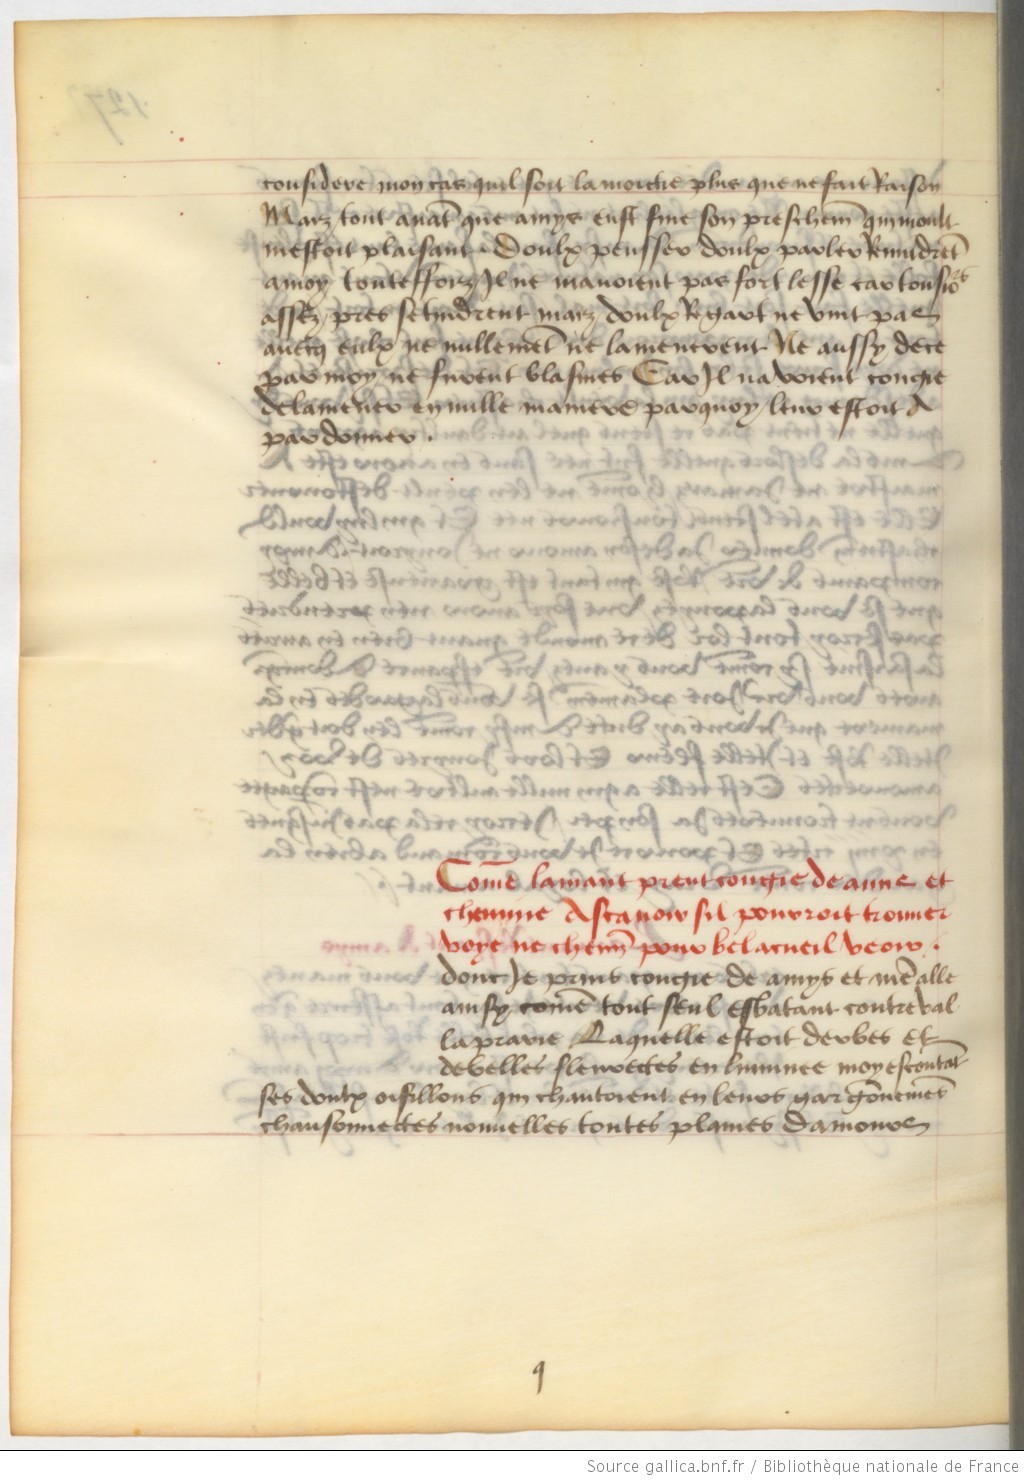 considere mon cas quil soit la moictie plus que ne fait Raison
Maiz tout avāt que amys eust fine son preschem̄ qui moult
mestoit plaisant. Doulx pensser doulx parler Revindrēt
a moy touteffoiz Il ne mavoient pas fort lesse car tousiors
assez pres se tindrent maiz doulx Regart ne vint pas
avecq eulx ne nullemēt ne lamenerent Ne aussy de ce
par moy ne furent blasmes Car Il navoient congie
de lamener en nulle maniere parquoy leur estoit A
pardonner .
Com̄e lamant prent congie de amis et
chemine A scavoir sil pourroit trouver
voye ne chem̄ pour bel acueil veoir .
donc Je prins congie de amys et mē alle
ainsy com̄e tout seul esbatant contreval
la prarie Laquelle estoit derbes et
de belles fleurectes en luminee moy escoutāt
ses doulx oisillons qui chantoient en leurs gargōnemēs
chansonnectes nouvelles toutes plaines Damours
9
Source gallica.bnf.fr / Bibliothèque nationale de France